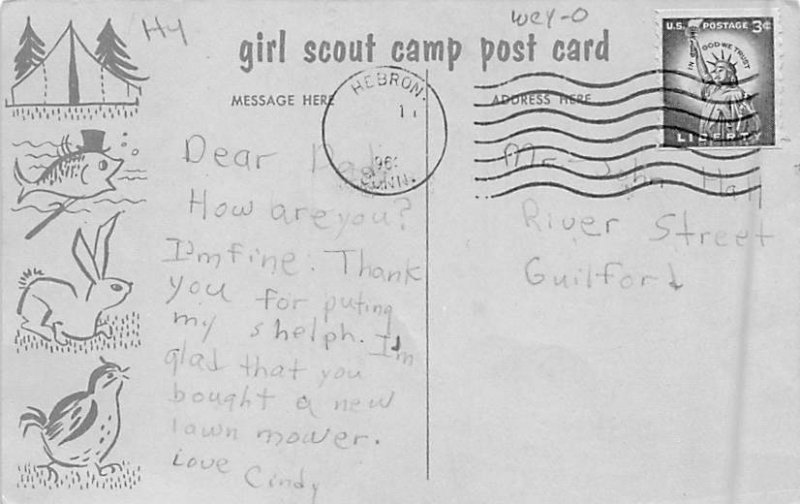 H4
wey-O
girl scout camp post card
U.S. POSTAGE 3¢
IN GOD WE TRUST
LIBERTY
MESSAGE HERE
ADDRESS HERE
HEBRON.
11
196
CONN.
Dear Dad,
How are you?
I'm fine. Thank
you for puting
my shelph. I'm
glad that you
bought a new
lawn mower.
Love Cindy
Mr. John Hall
River Street
Guilford